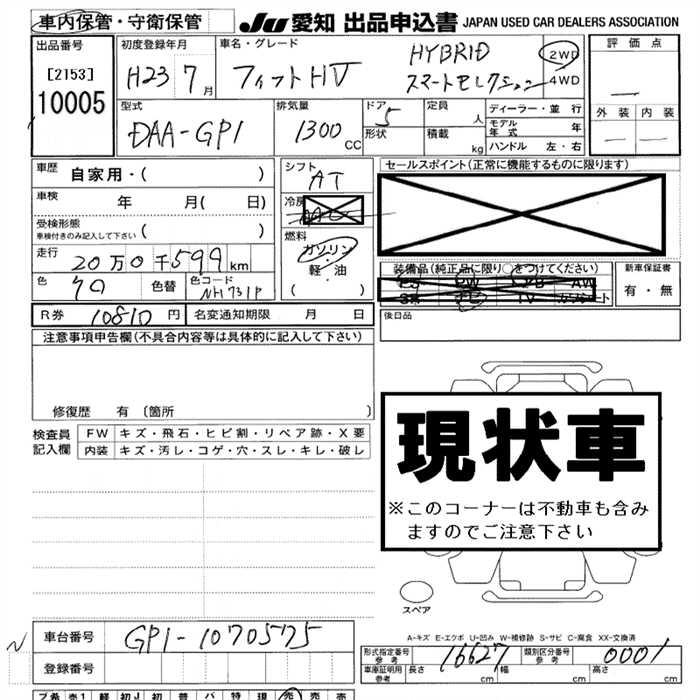 車内保管・守衛保管
JU 愛知 出品申込書 JAPAN USED CAR DEALERS ASSOCIATION
出品番号 [2153] 10005
初度登録年月 H23 7 月
車名・グレード フィットHV HYBRID スマートセレクション
2WD
4WD
評価点 —
外装 内装
— —
型式 DAA-GP1
排気量 1300 CC
ドア 5
形状
定員 人
積載 kg
ディーラー・並行
モデル年式 年
ハンドル 左・右
車歴 自家用・( )
車検 年 月( 日)
受検形態 車検付きのみ記入して下さい ( )
走行 20万0千599 km
色 クロ 色替 色コード NH731P
シフト AT
冷房
燃料 ガソリン・軽・油 ( )
セールスポイント(正常に機能するものに限ります)
装備品(純正品に限り○をつけてください)
PS PW AW
TV
新車保証書 有・無
後日品
R券 10810 円 名変通知期限 月 日
注意事項申告欄(不具合内容等は具体的に記入して下さい)
修復歴 有〔箇所 〕
検査員記入欄
FW キズ・飛石・ヒビ割・リペア跡・X要
内装 キズ・汚レ・コゲ・穴・スレ・キレ・破レ
現状車
※このコーナーは不動車も含み
ますのでご注意下さい
スペア
A-キズ E-エクボ U-凹み W-補修跡 S-サビ C-腐食 XX-交換済
N
車台番号 GP1-1070575
登録番号
形式指定番号 参考 16627 類別区分番号 参考 0001
車庫証明用 参考 長さ cm 幅 cm 高さ cm